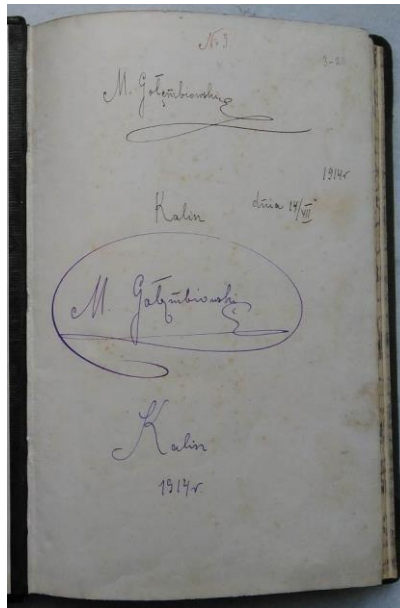 № 3
3-20
M. Gołęmbiowski
1914r
Kalisz dnia 14/VII
M. Gołęmbiowski
Kalisz
1914r.